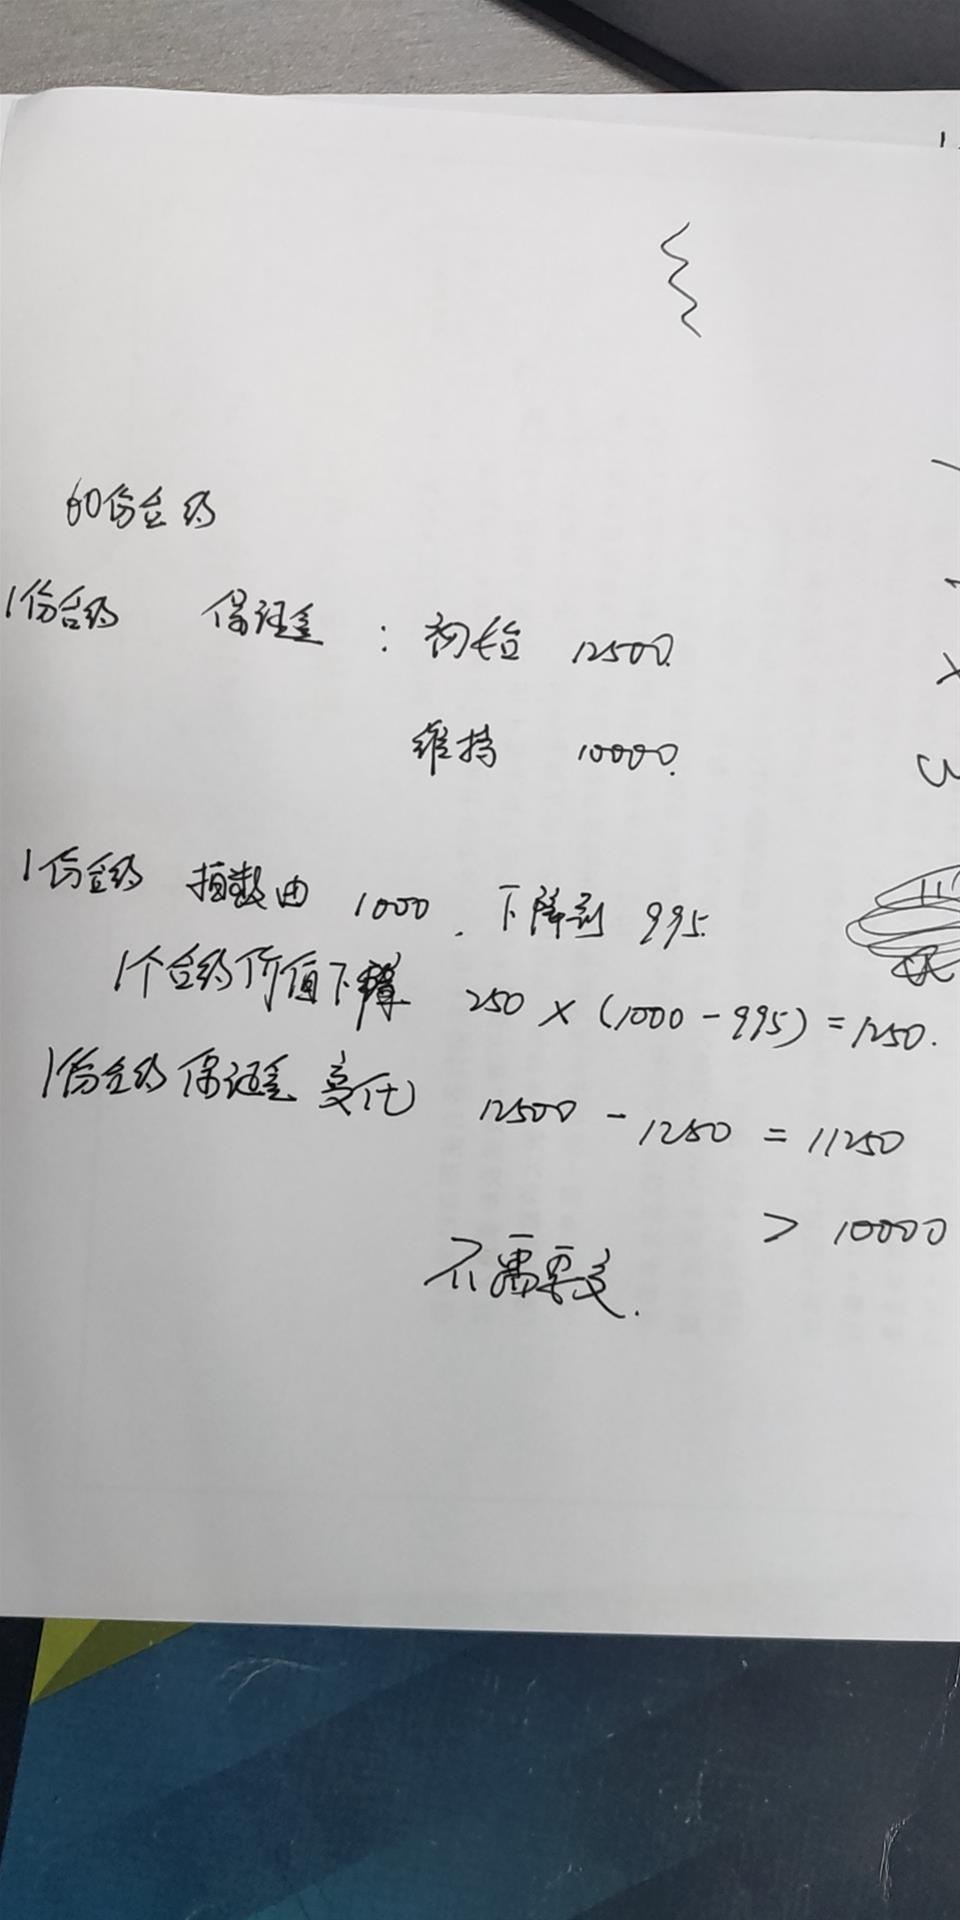 60份合约
1份合约 保证金：初始 12500.
维持 10000.
1份合约 指数由 1000. 下降到 995.
1个合约价值下降 250×(1000-995)=1250.
1份合约保证金变化 12500-1250=11250
>10000
不需要交.